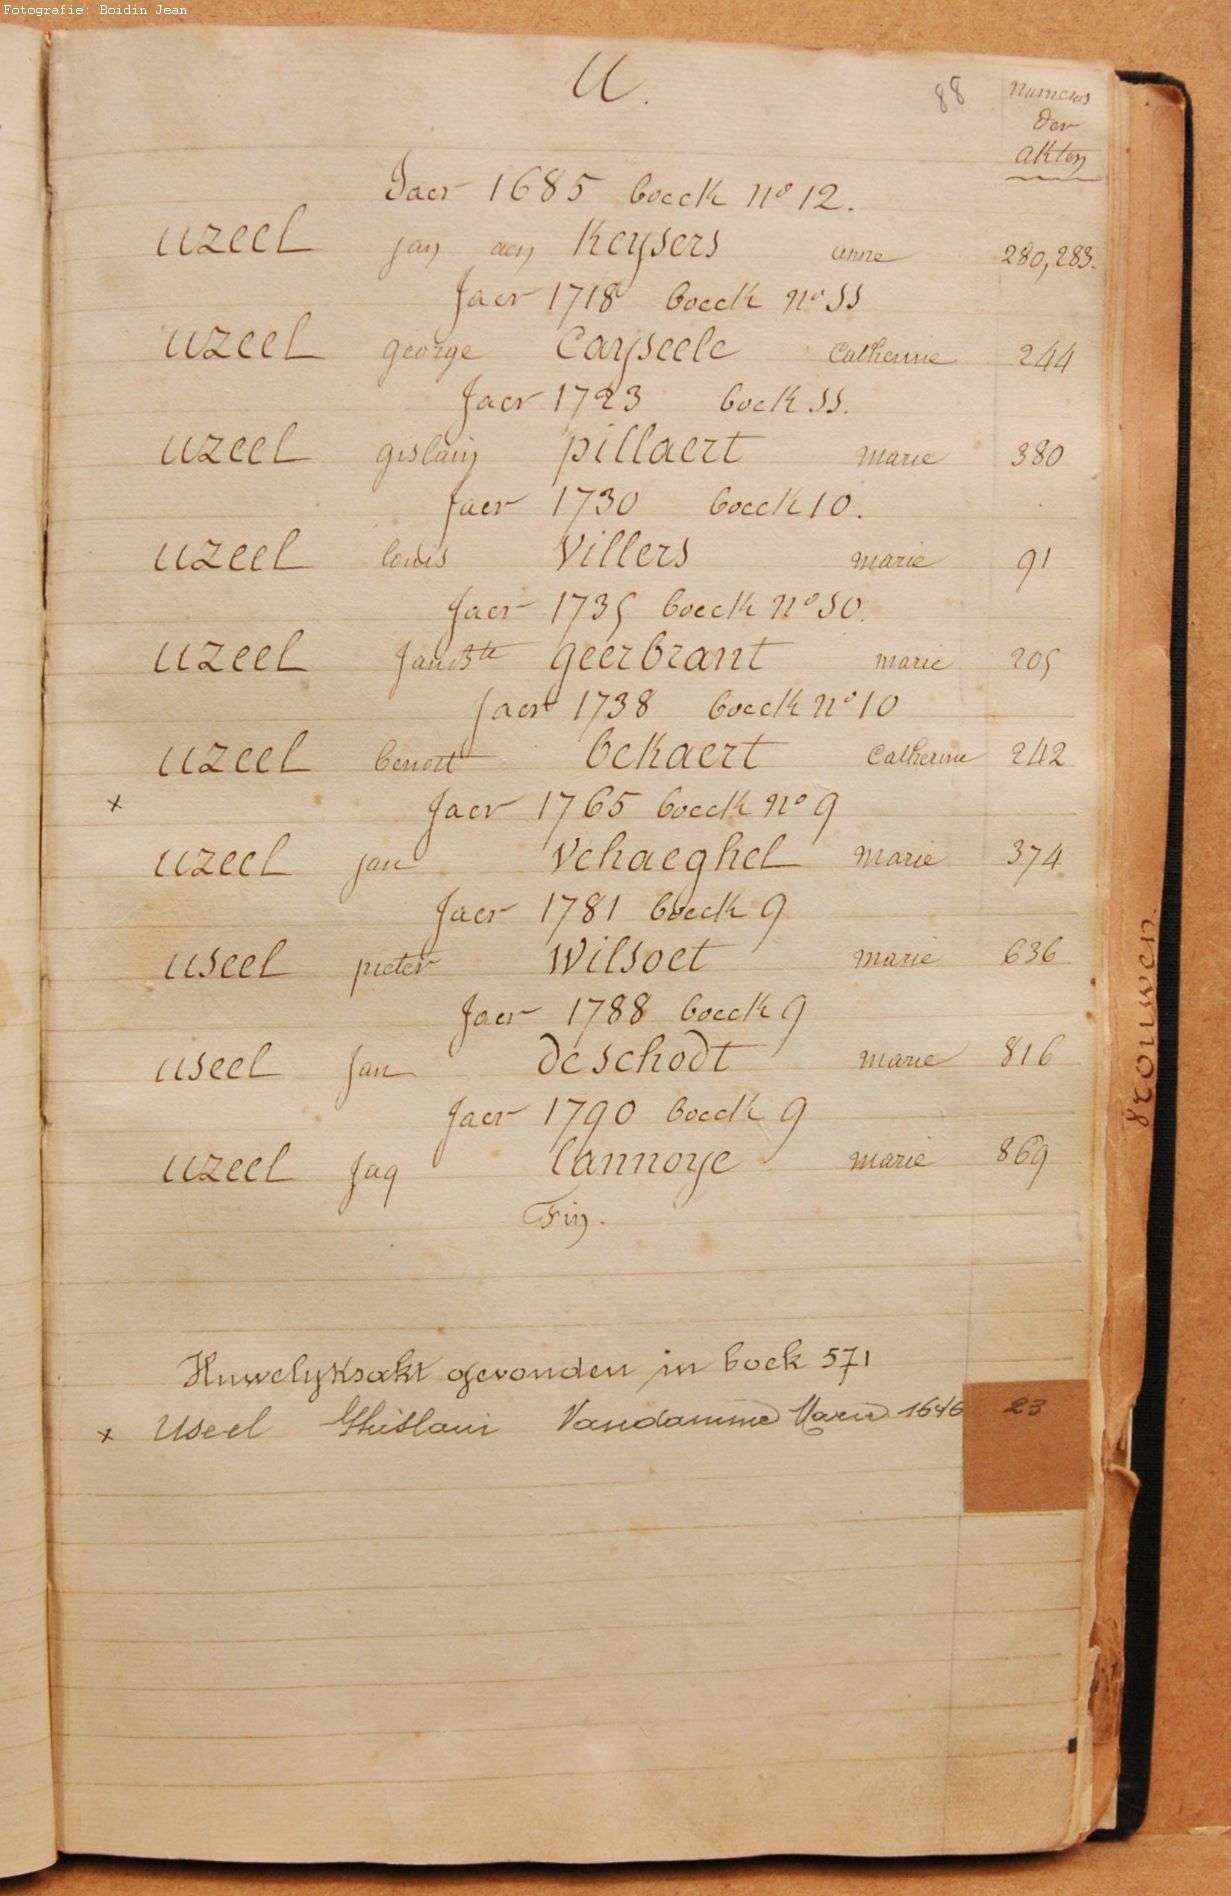 Fotografie: Boidin Jean
U.
88
numeros
der
akten
Jaer 1685 boeck no 12.
uzeel jan aen Keysers anne 280,283.
Jaer 1718 boeck no 55
uzeel george Cayseele Catherine 244
Jaer 1723 bock 55.
uzeel gislain pillaert marie 380
jaer 1730 boeck 10.
uzeel louis Villers marie 91
Jaer 1735 boeck no 50.
uzeel Jan Bte geerbrant marie 205
Jaer 1738 boeck no 10
uzeel benoit bekaert Catherine 242
x Jaer 1765 boeck no 9
uzeel jan Vehaeghel marie 374
Jaer 1781 boeck 9
useel pieter Wilsoet marie 636
Jaer 1788 boeck 9
useel Jan deschodt marie 816
Jaer 1790 boeck 9
uzeel Jaq lannoye marie 869
Fin.
Huwelyksakt gevonden in boek 571
x Useel Ghislain Vandamme Marie 1646 23
trouwen.